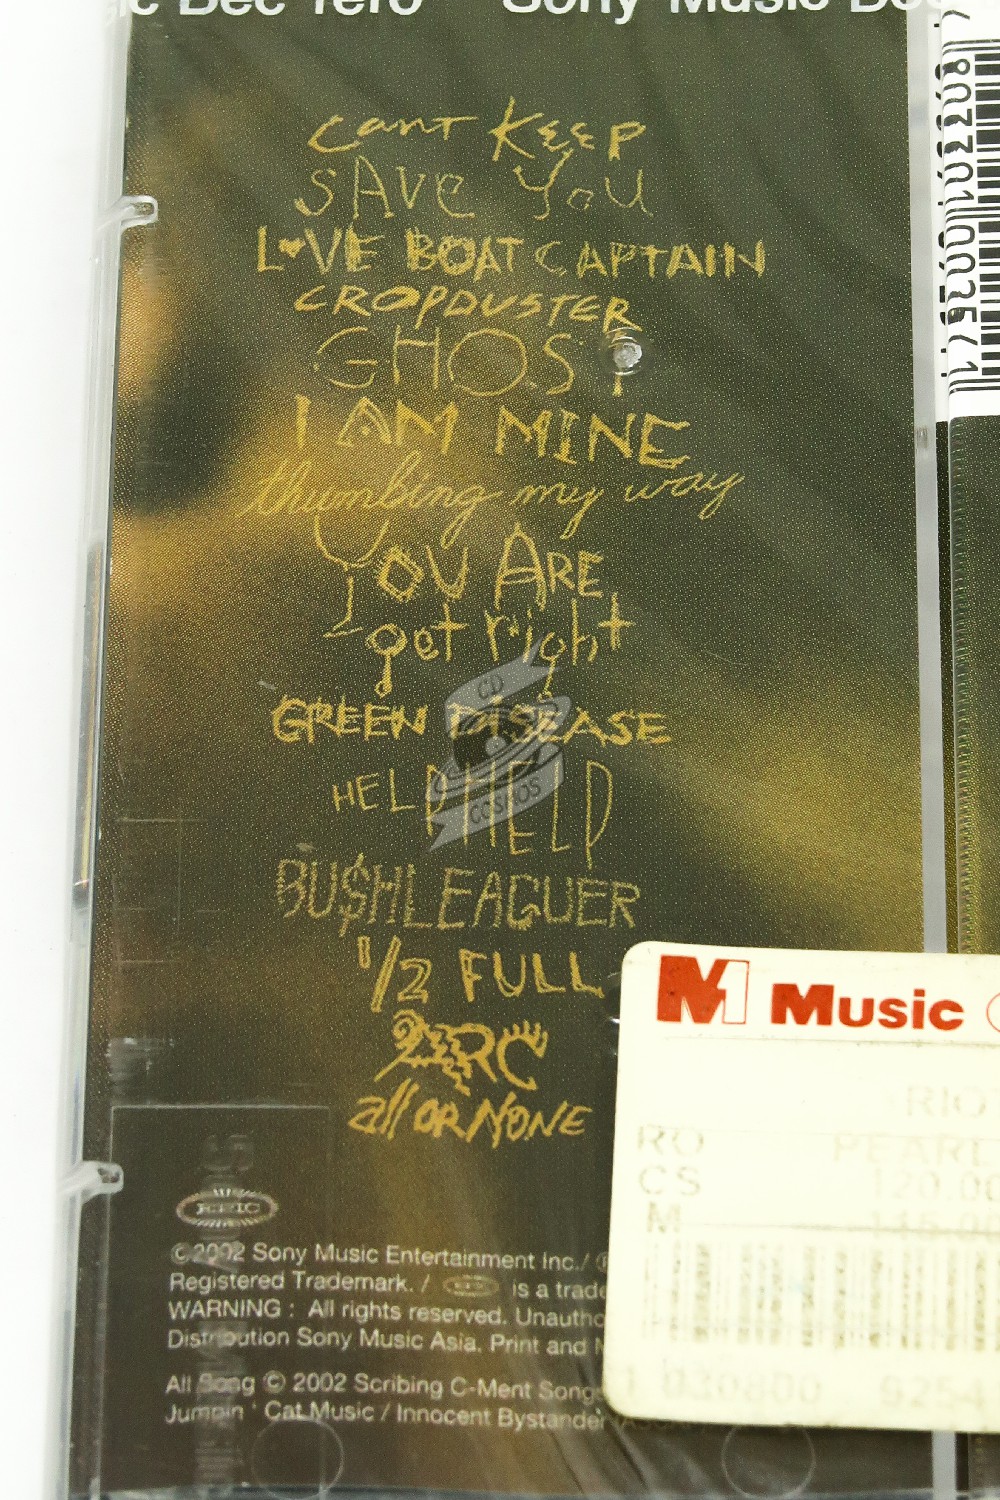 Sony Music
cant KEEP
SAVE YoU
L♥VE BOAT CAPTAIN
CROPDUSTER
GHOST
I AM MINE
thumbing my way
YOU ARE
get right
GREEN DISEASE
HELPHELP
BU$HLEAGUER
1/2 FULL
ARC
all OR NONE
CD
COSMOS
EPIC
©2002 Sony Music Entertainment Inc./
Registered Trademark. / is a trade
WARNING : All rights reserved. Unautho
Distribution Sony Music Asia, Print and
All Song © 2002 Scribing C-Ment Songs
Jumpin ' Cat Music / Innocent Bystander
M1 Music
RIOT
RO PEARL
CS 120.00
M